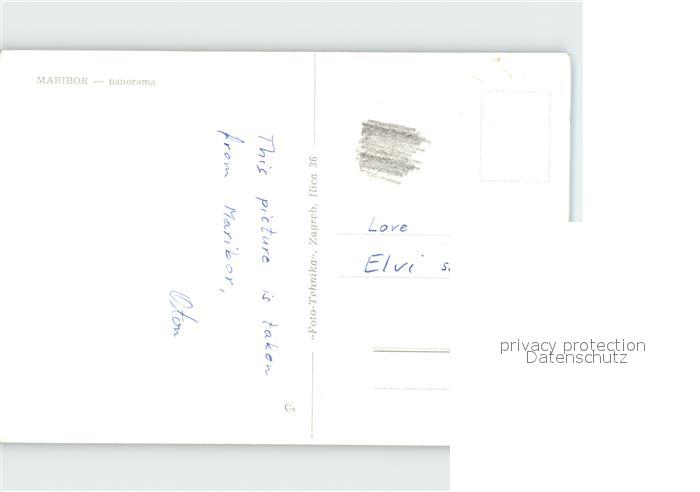 MARIBOR — panorama
This picture is taken
from Maribor,
Oton
»Foto-Tehnika«, Zagreb, Ilica 36
Love
Elvi
privacy protection
Datenschutz